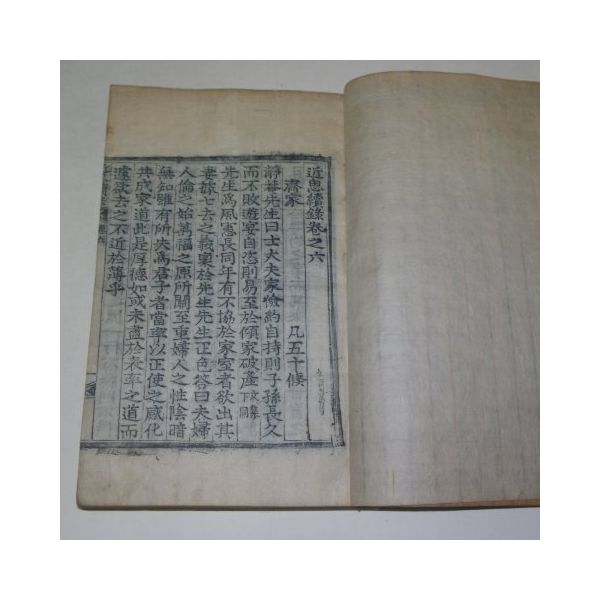 近思續錄卷之六
齊家 凡五十條
靜菴先生曰士大夫家儉約自持則子孫長久
而不敗遊宴自恣則易至於傾家破產
先生爲風憲長同年有不協於家室者欲出其
妻據七去之義稟於先生先生正色答曰夫婦
人倫之始萬福之原所關至重婦人之性陰暗
無知雖有所失爲君子者當率以正使之感化
共成家道此是厚德如或未盡於表率之道而
遽欲去之不近於薄乎